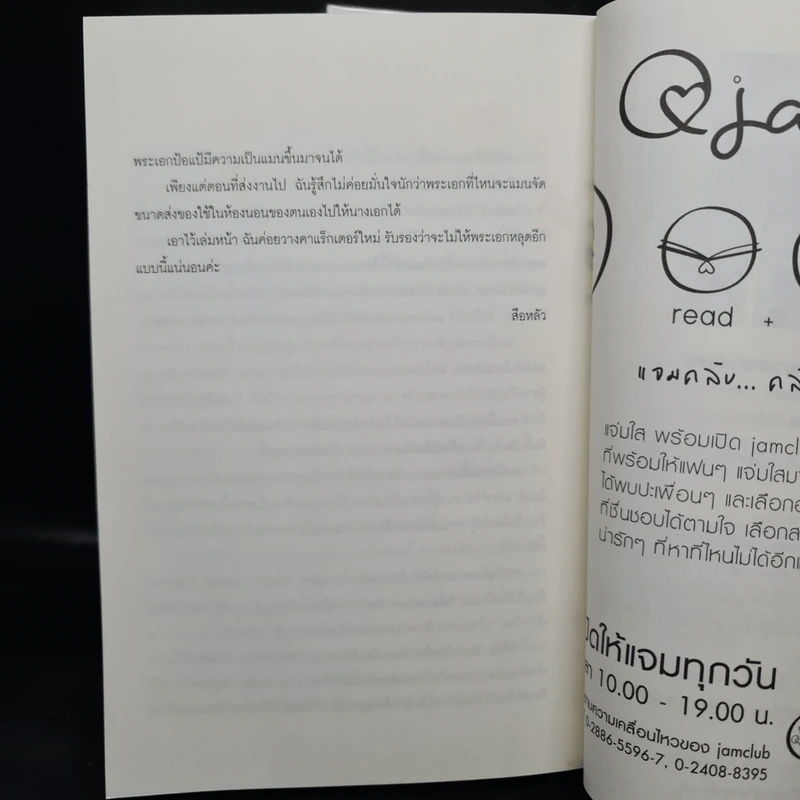 พระเอกป้อแป้มีความเป็นแมนขึ้นมาจนได้
เพียงแต่ตอนที่ส่งงานไป ฉันรู้สึกไม่ค่อยมั่นใจนักว่าพระเอกที่ไหนจะแมนจัด
ขนาดส่งของใช้ในห้องนอนของตนเองไปให้นางเอกได้
เอาไว้เล่มหน้า ฉันค่อยวางคาแร็กเตอร์ใหม่ รับรองว่าจะไม่ให้พระเอกหลุดอีก
แบบนี้แน่นอนค่ะ
สือหลัว
@ja
read +
แจมคลับ...
แจ่มใส พร้อมเปิด jamcl
ที่พร้อมให้แฟนๆ แจ่มใสมา
ได้พบปะเพื่อนๆ และเลือก
ที่ชื่นชอบได้ตามใจ เลือก
น่ารักๆ ที่หาที่ไหนไม่ได้อีก
ให้แจมทุกวัน
10.00 - 19.00 น.
ความเคลื่อนไหวของ jamclub
0-2886-5596-7, 0-2408-8395